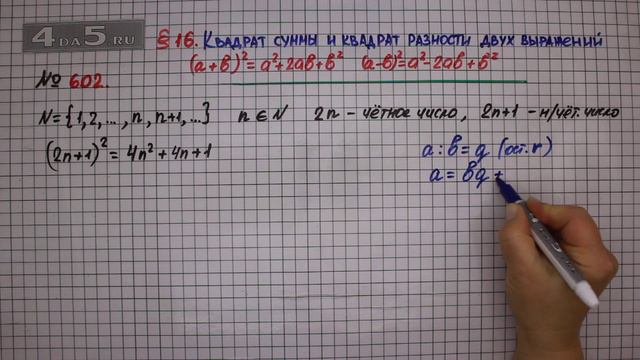 4DA5.RU
§ 16. Квадрат суммы и квадрат разности двух выражений
(a+b)²=a²+2ab+b² (a-b)²=a²-2ab+b²
№ 602.
N={1,2,...,n,n+1,...} n∈N 2n – чётное число, 2n+1 – н/чёт. число
(2n+1)²=4n²+4n+1
a:b=q (ост.r)
a=bq+